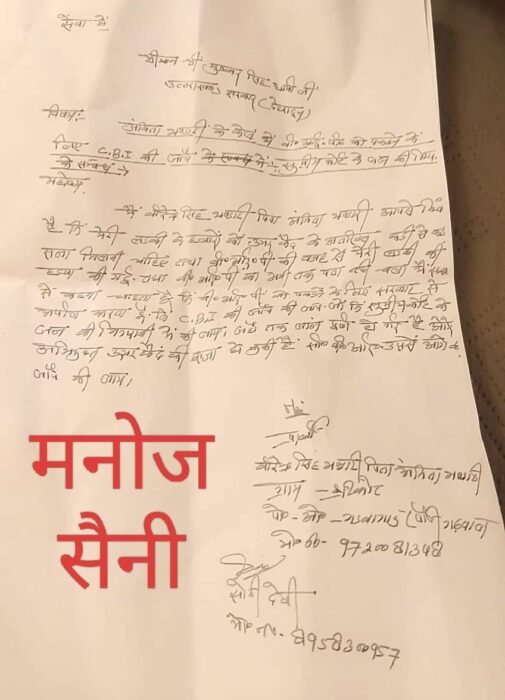 सेवा में
श्रीमान श्री पुष्कर सिंह धामी जी
उत्तराखण्ड सरकार (देहरादून)
विषय:-
अंकिता भण्डारी के केस में वी॰ आई॰ पी॰ को पकड़ने के
लिए C.B.I की जाँच के सम्बन्ध में :- सुप्रीम कोर्ट के जज की
के सम्बन्ध में
महोदय
मैं वीरेन्द्र सिंह भण्डारी पिता अंकिता भण्डारी आपसे
है कि मेरी लड़की के हत्यारों को उम्र कैद के कड़ी से कड़ी
सजा चाहिए तथा वी॰ आई॰ पी की वजह से मेरी लड़की की
हत्या की गई तथा वी॰ आई॰ पी का अभी तक पता नहीं चला मैं
से कहना चाहता हूँ कि वी॰ आई॰ पी को पकड़ने के लिए सरकार से
करता हूँ कि C.B.I की जाँच की जाय जो कि सुप्रीम कोर्ट के
जज की निगरानी में की जाय। जहाँ तक जाँच हो गई है और
उम्रकैद की सजा हो चुकी है उससे आगे की
जाँच की जाय।
प्रार्थी
वीरेन्द्र सिंह भण्डारी पिता अंकिता भण्डारी
ग्राम - श्रीकोट
पो॰ ओ॰ - (पौड़ी गढ़वाल)
मो॰ न॰ - 9720081348
सोनी देवी
मो॰ न॰ - 8958300957
मनोज
सैनी